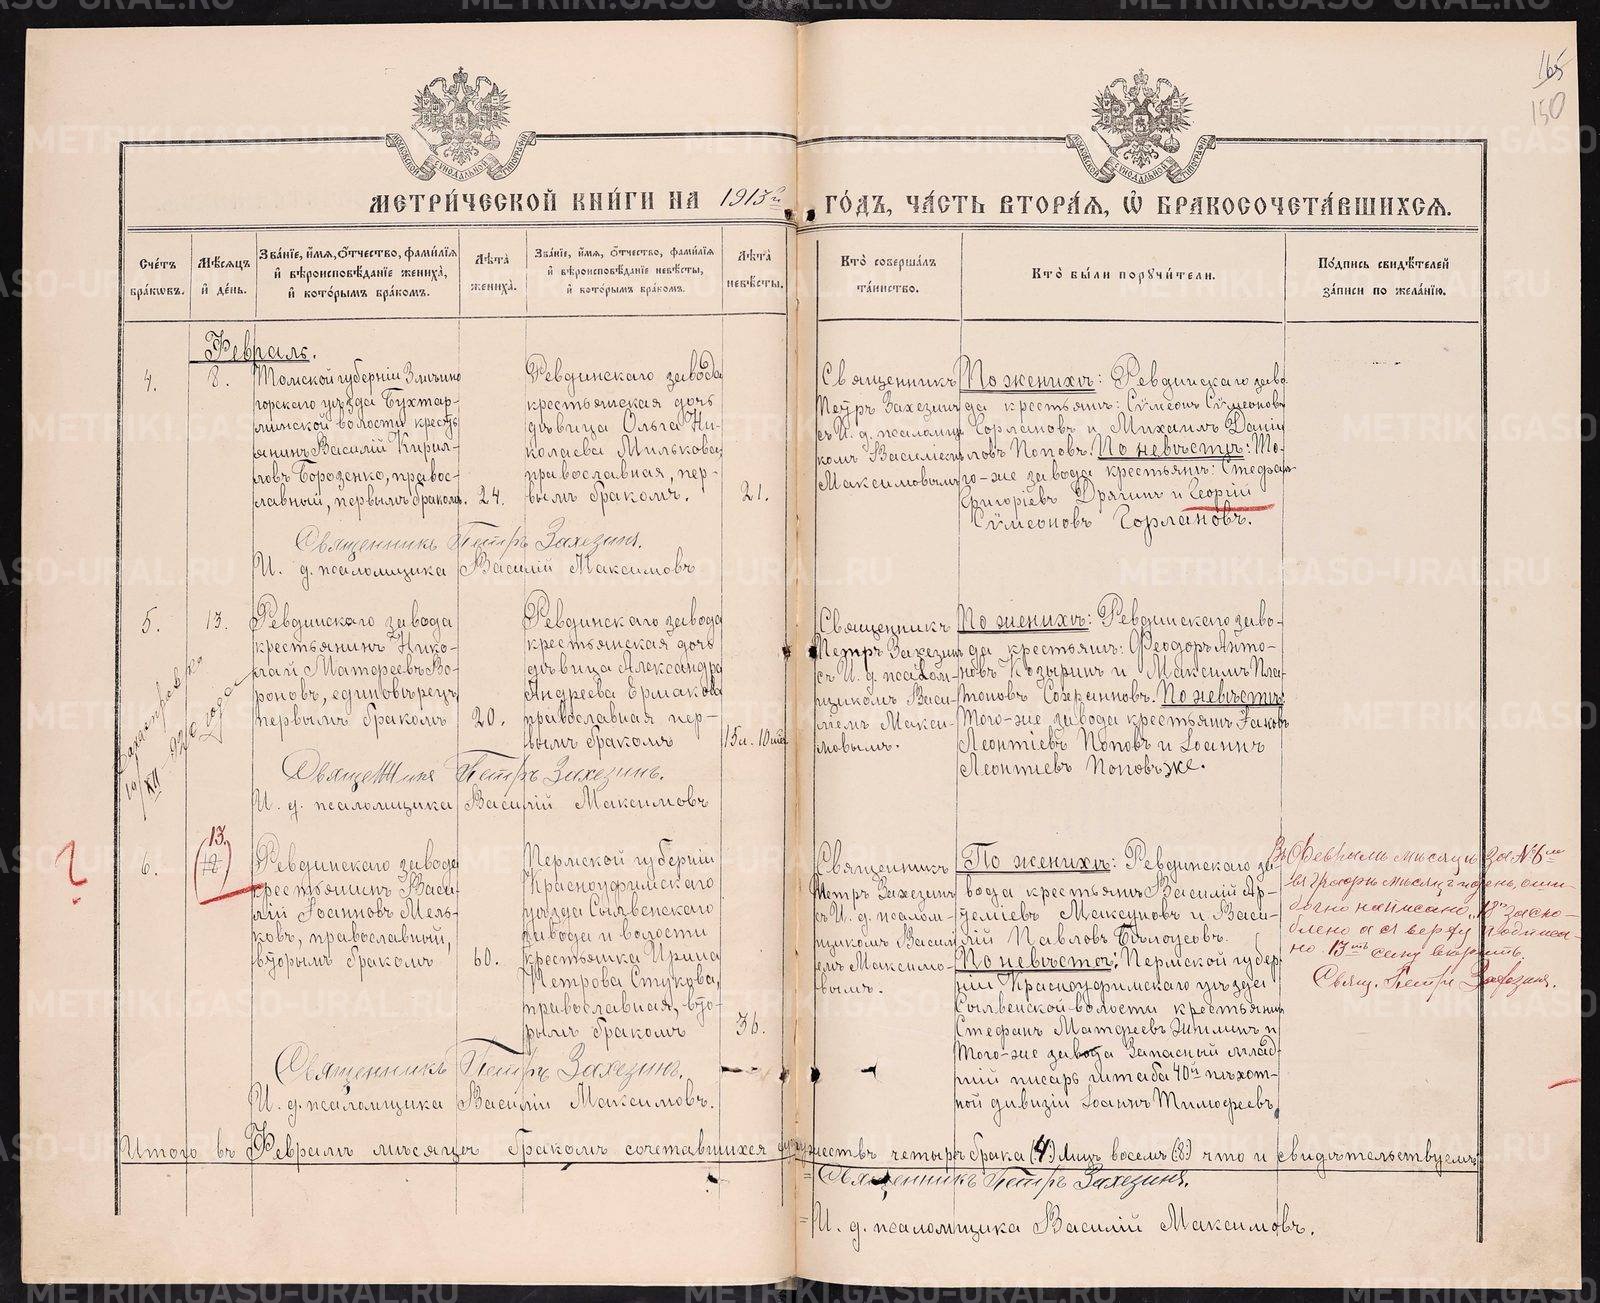 165
150
МОСКОВСКОЙ СѴНОДАЛЬНОЙ ТИПОГРАФІИ
МОСКОВСКОЙ СѴНОДАЛЬНОЙ ТИПОГРАФІИ
МЕТРИ́ЧЕСКОЙ КНИ́ГИ НА 1913й ГО́ДЪ, ЧА́СТЬ ВТОРА́Я, Ѽ БРАКОСОЧЕТА́ВШИХСЯ.
Сче́тъ бра́кѡвъ.
Мѣ́сяцъ и҆ де́нь.
Зва́нїе, и҆́мя, ѻ҆́тчество, фами́лїя и҆ вѣроисповѣ́данїе жениха̀, и҆ кото́рымъ бра́комъ.
Лѣ́та жениха̀.
Зва́нїе, и҆́мя, ѻ҆́тчество, фами́лїя и҆ вѣроисповѣ́данїе невѣ́сты, и҆ кото́рымъ бра́комъ.
Лѣ́та невѣ́сты.
Кто̀ соверша́лъ та́инство.
Кто̀ бы́ли порꙋчи́тели.
По́дпись свидѣ́телей за́писи по жела́нїю.
Февраль.
4.
8.
Томской губерніи Змѣино
горскаго уѣзда Бухтар-
минской волости кресть
янинъ Василій Кирил-
ловъ Борозенко, правос-
лавный, первымъ бракомъ.
24.
Ревдинскаго завода
крестьянская дочь
дѣвица Ольга Ни-
колаева Милькова,
православная, пер-
вымъ бракомъ.
21.
Священникъ
Петръ Захезинъ
съ И. д. псаломщи
комъ Василіемъ
Максимовымъ
По женихѣ: Ревдинскаго заво
да крестьянъ: Сѵмеонъ Сѵмеоновъ
Горлановъ и Михаилъ Даніи
ловъ Поповъ. По невѣстѣ: То-
го-же завода крестьянъ: Стефан
Григоріевъ Дрягинъ и Георгій
Сѵмеоновъ Горлановъ.
Священникъ Петръ Захезинъ.
И. д. псаломщика Василій Максимовъ
5.
13.
Ревдинскаго завода
крестьянинъ Нико-
лай Матфеевъ Во-
роновъ, единовѣрецъ,
первымъ бракомъ
20.
Ревдинскаго завода
крестьянская дочь
дѣвица Александра
Андреева Ермакова
православная пер-
вымъ бракомъ
15л. 10мѣс
Священникъ
Петръ Захезинъ
съ И. д. псалом-
щикомъ Васи-
ліемъ Макси-
мовымъ.
По женихѣ: Ревдинскаго заво-
да крестьянъ: Ѳеодоръ Анто-
новъ Козыринъ и Максимъ Пла-
тоновъ Сохранновъ. По невѣстѣ
Того-же завода крестьянъ Іаковъ
Леонтіевъ Поповъ и Іоаннъ
Леонтіевъ Поповъ же.
10/XII-92 года
Священникъ Петръ Захезинъ.
И. д. псаломщика Василій Максимовъ
6.
13
18
Ревдинскаго завода
крестьянинъ Васи-
лій Іоанновъ Мель-
ковъ, православный,
вторымъ бракомъ
60.
Пермской губерніи
Красноуфимскаго
уѣзда Сылвенскаго
завода и волости
крестьянка Ирина
Петрова Стукова,
православная, вто-
рымъ бракомъ
36.
Священникъ
Петръ Захезинъ
съ И. д. псалом-
щикомъ Васили
емъ Максимо-
вымъ.
По женихѣ: Ревдинскаго за-
вода крестьянъ Василій Ар-
темиевъ Максуновъ и Васи-
лій Павловъ Бѣлоусовъ.
По невѣстѣ: Пермской губер
ніи Красноуфимскаго уѣзда
Сылвенской волости крестьянинъ
Стефанъ Матфеевъ Зиминъ и
того-же завода Запасный млад-
шій писарь штаба 40й пѣхот-
ной дивизіи Іоаннъ Тимофеевъ
Въ Февралѣ мѣсяцѣ за № 6мъ
въ графѣ мѣсяцъ и день, оши-
бочно написано „18" заско-
блено а с верху надписа-
но 13ть сему вѣрить.
Свящ. Петръ Захезинъ.
Священникъ Петръ Захезинъ.
И. д. псаломщика Василій Максимовъ.
Итого въ Февралѣ мѣсяцѣ бракомъ сочетавшихся четыре брака (4) Лицъ восемь (8) что и свидѣтельствуемъ
Священникъ Петръ Захезинъ.
И. д. псаломщика Василій Максимовъ.
METRIKI.GASO-URAL.RU